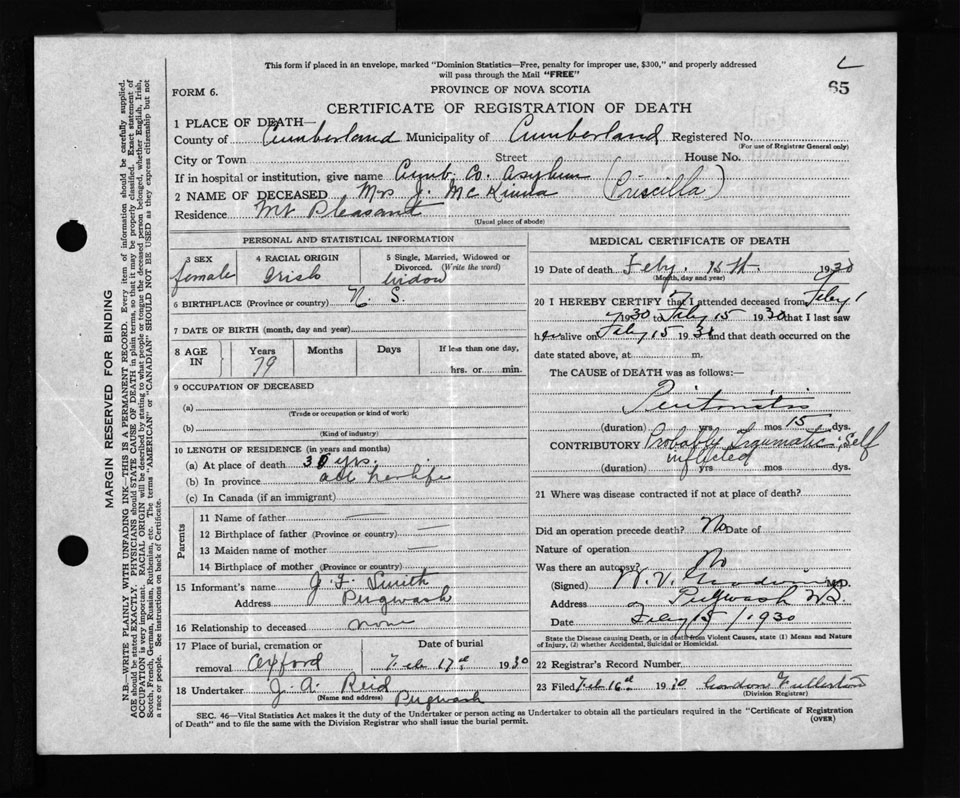 This form if placed in an envelope, marked "Dominion Statistics—Free, penalty for improper use, $300," and properly addressed
will pass through the Mail "FREE"
65
FORM 6.
PROVINCE OF NOVA SCOTIA
CERTIFICATE OF REGISTRATION OF DEATH
1 PLACE OF DEATH—
County of Cumberland Municipality of Cumberland Registered No.
(For use of Registrar General only)
City or Town Street House No.
If in hospital or institution, give name Cumb. Co. Asylum
2 NAME OF DECEASED Mrs J. McKinna (Priscilla)
Residence Mt Pleasant
(Usual place of abode)
PERSONAL AND STATISTICAL INFORMATION
3 SEX
female
4 RACIAL ORIGIN
Irish
5 Single, Married, Widowed or
Divorced. (Write the word)
widow
6 BIRTHPLACE (Province or country) N. S.
7 DATE OF BIRTH (month, day and year)
8 AGE
IN
Years
79
Months
Days
If less than one day,
hrs. or min.
9 OCCUPATION OF DECEASED
(a)
(Trade or occupation or kind of work)
(b)
(Kind of industry)
10 LENGTH OF RESIDENCE (in years and months)
(a) At place of death 30 yrs.
(b) In province all her life
(c) In Canada (if an immigrant)
Parents
11 Name of father —
12 Birthplace of father (Province or country) —
13 Maiden name of mother —
14 Birthplace of mother (Province or country)
15 Informant's name J. F. Smith
Address Pugwash
16 Relationship to deceased none
17 Place of burial, cremation or
removal Oxford
Date of burial
Feb 17th 1930
18 Undertaker J. A. Reid
(Name and address) Pugwash
MEDICAL CERTIFICATE OF DEATH
19 Date of death Feby. 15th. 1930
(Month, day and year)
20 I HEREBY CERTIFY that I attended deceased from Feby 1
1930 to Feby 15 1930 that I last saw
her alive on Feby 15 1930 and that death occurred on the
date stated above, at m.
The CAUSE of DEATH was as follows:—
Peritonitis
(duration) yrs mos 15 dys.
CONTRIBUTORY Probably Traumatic, Self
inflicted
(duration) yrs mos dys.
21 Where was disease contracted if not at place of death?
Did an operation precede death? No Date of
Nature of operation
Was there an autopsy? No
(Signed) W. V. M.D.
Address Pugwash N.S.
Date Feby 15/1930
State the Disease causing Death, or in death from Violent Causes, state (1) Means and Nature
of Injury, (2) whether Accidental, Suicidal or Homicidal.
22 Registrar's Record Number
23 Filed Feb 16th 1930 Gordon Fullerton
(Division Registrar)
SEC. 46—Vital Statistics Act makes it the duty of the Undertaker or person acting as Undertaker to obtain all the particulars required in the "Certificate of Registration
of Death" and to file the same with the Division Registrar who shall issue the burial permit.
(OVER)
MARGIN RESERVED FOR BINDING
N.B.—WRITE PLAINLY WITH UNFADING INK—THIS IS A PERMANENT RECORD. Every item of information should be carefully supplied.
AGE should be stated EXACTLY. PHYSICIANS should STATE CAUSE OF DEATH in plain terms, so that it may be properly classified. Exact statement of
OCCUPATION is very important. RACIAL ORIGIN will be described by stating to what people or tongue the deceased person belonged, whether English, Irish,
Scotch, French, German, Russian, Ruthenian, etc. The terms "AMERICAN" or "CANADIAN" SHOULD NOT BE USED as they express citizenship but not
a race or people. See instructions on back of Certificate.